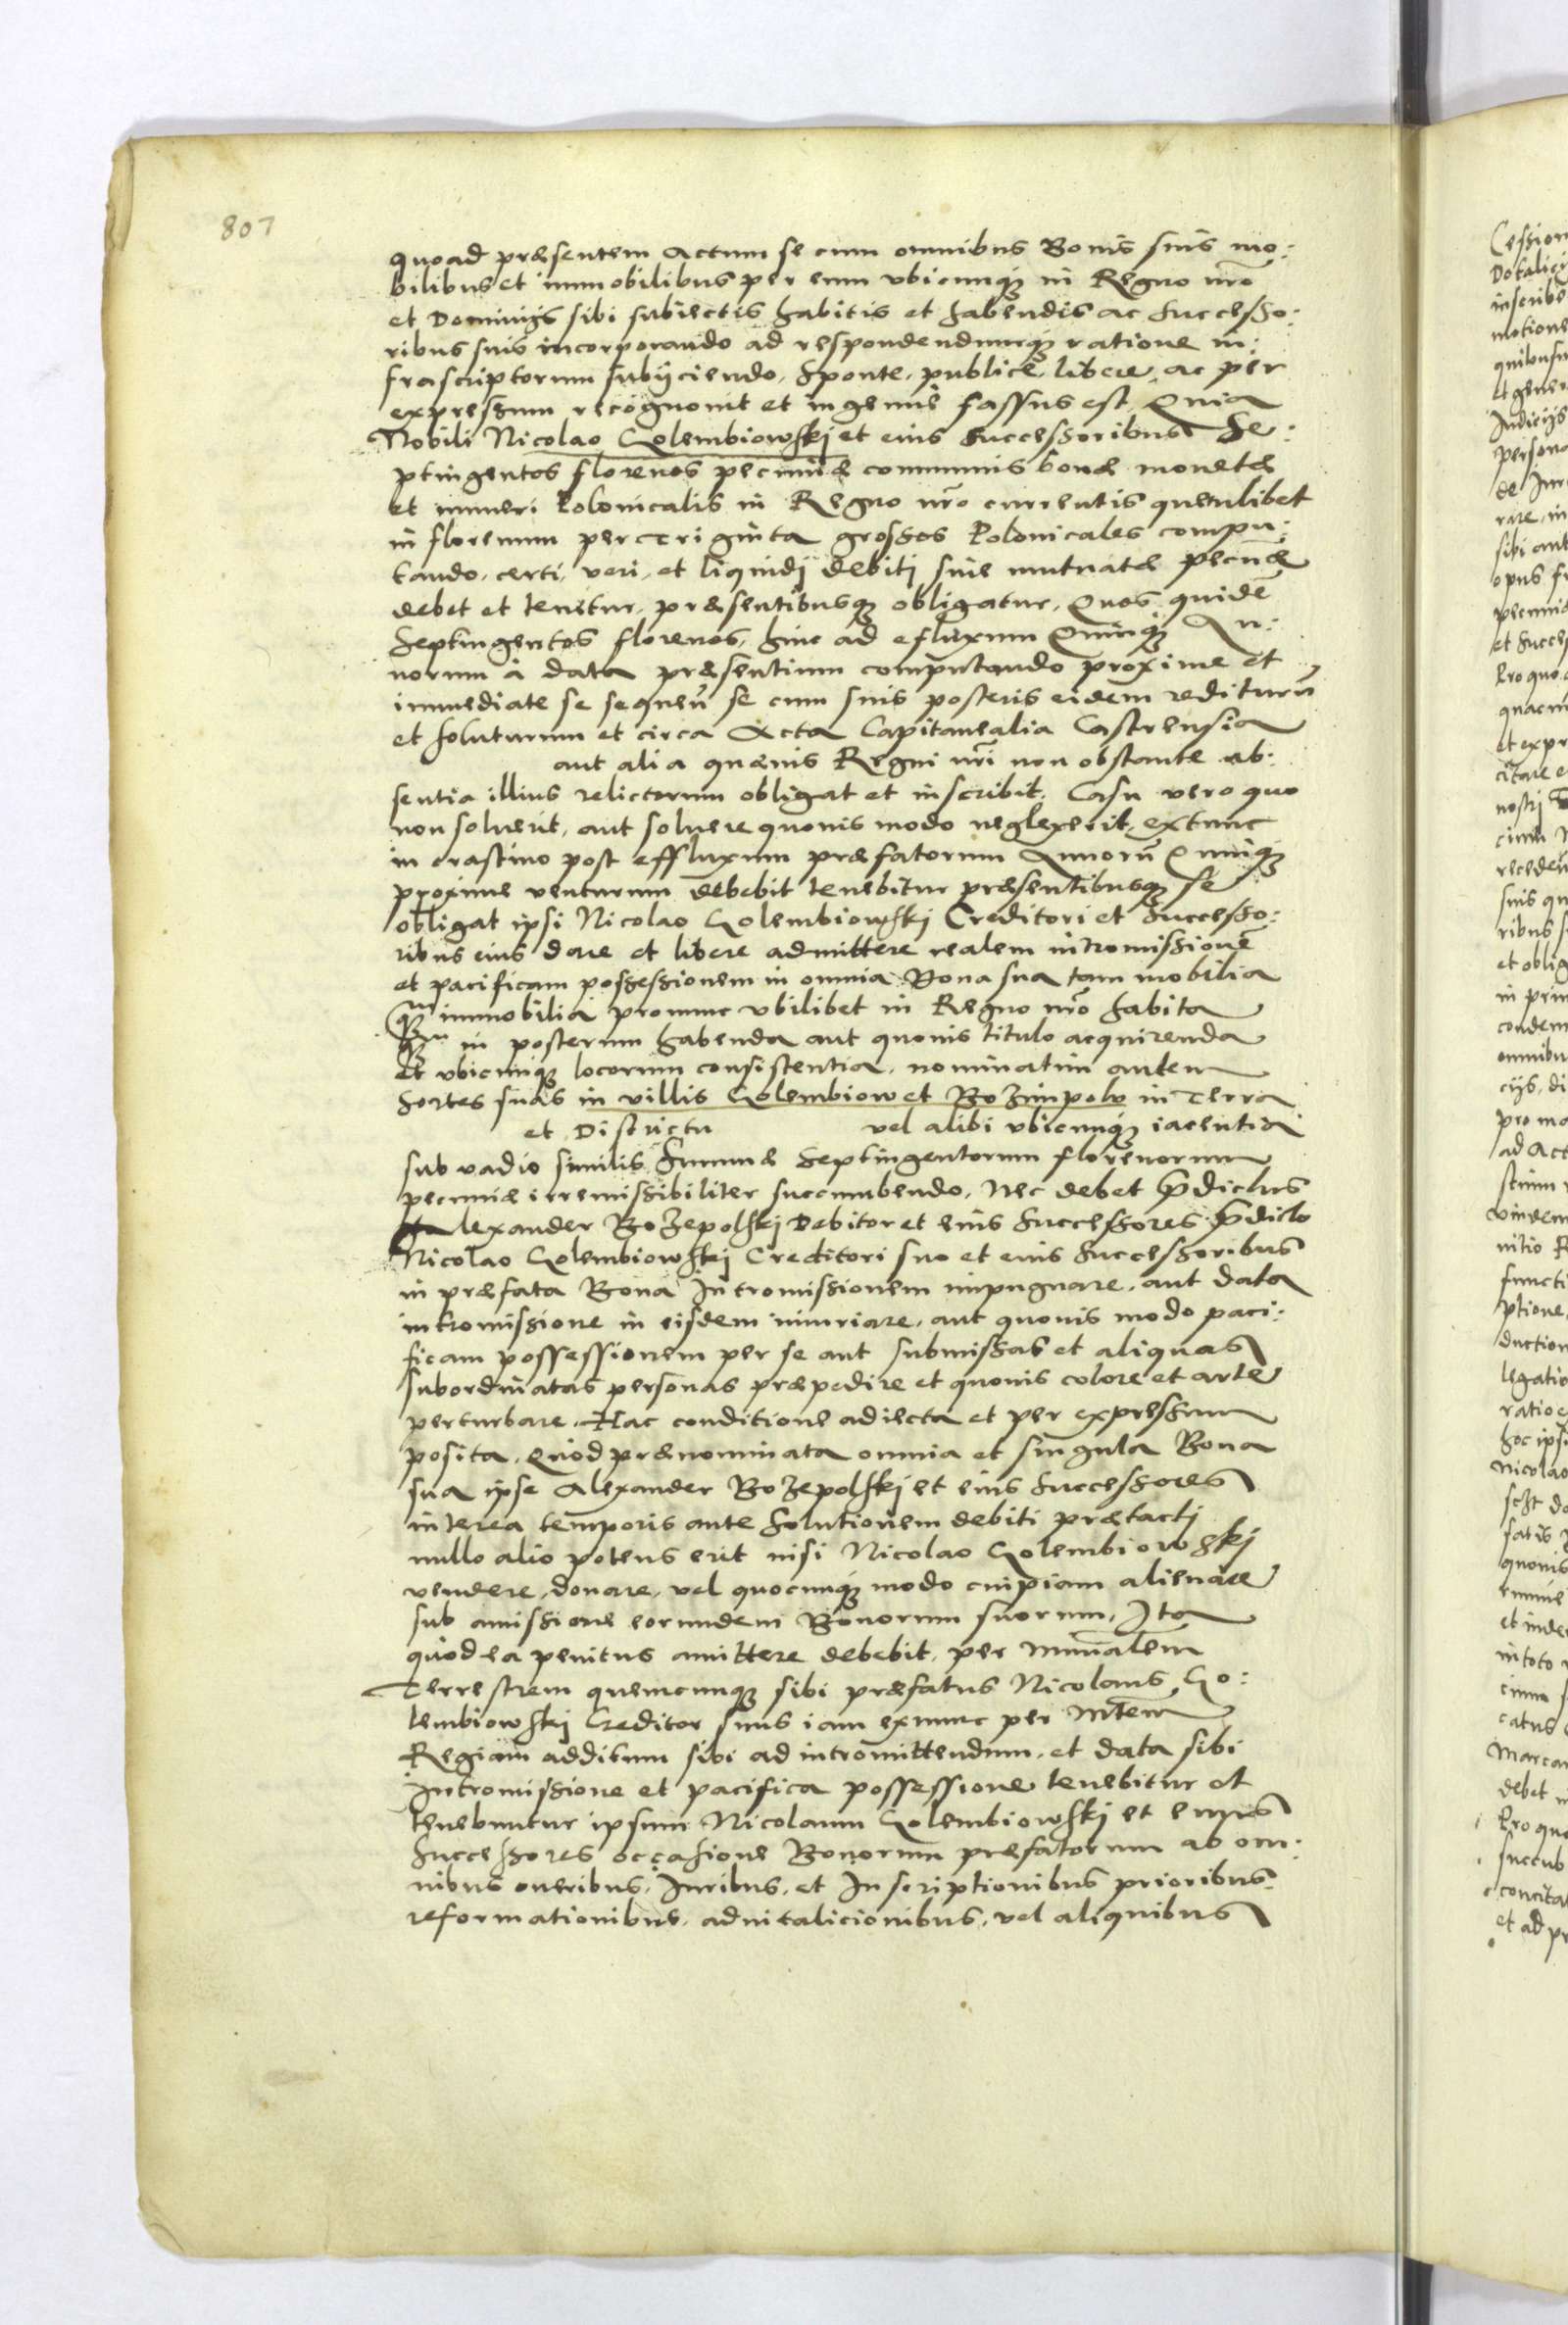 807
quoad præsentem Actum se cum omnibus Bonis suis mo:
bilibus et immobilibus per eum vbicunq3 in Regno nr̄o
et Dominijs sibi subiectis habitis et habendis ac Successo:
ribus suis incorporando ad respondendumq3 ratione in:
frascriptorum subijciendo. Sponte, publicè, libere, ac per
expressum recognouit et ingenuè fassus est. Quia
Nobili Nicolao Golembiowskj et eius Successoribus Se:
ptingentos florenos pecuniæ communis bonæ monetæ
et numeri Polonicalis in Regno nr̄o currentis quemlibet
in florenum per Triginta grossos Polonicales compu:
tando, certi, veri, et liquidj debitj siue mutuatæ pecūæ
debet et tenetur, præsentibusq3 obligatur. Quos quidē
Septingentos florenos, hinc ad efluxum Quinq3 An:
norum à data præsentium computando proxime et
immediate se sequeñ se cum suis posteris eidem rediturū
et soluturum et circa Acta Capitanealia Castrensia
aut alia quæuis Regni nr̄i non obstante ab:
sentia illius relictorum obligat et inscribit. Casu vero quo
non soluerit, aut soluere quouis modo neglexerit, extunc
in crastino post effluxum præfatorum Annorū Quinq3
proxime venturum debebit tenebitur præsentibusq3 se
obligat ipsi Nicolao Golembiowskj Creditori et Successo:
ribus eius dare et libere admittere realem intromissionē
et pacificam possessionem in omnia Bona sua tam mobilia
q3m immobilia pronunc vbilibet in Regno nr̄o habita
q3m in posterum habenda aut quouis titulo acquirenda
et vbicunq3 locorum consistentia, nominatim autem
Sortes suas in villis Golembiow et Bozimpolo in Terra
et Districtu vel alibi vbicunq3 iacentia
sub vadio similis Summæ Septingentorum florenorum
pecuniæ irremissibiliter succumbendo. Nec debet p̄dictus
Alexander Bozepolskj Debitor et eius Successores p̄dicto
Nicolao Golembiowskj Creditori suo et eius Successoribus
in præfata Bona Intromissionem impugnare, aut data
intromissione in eisdem iniuriare, aut quouis modo paci:
ficam possessionem per se aut submissas et aliquas
subordinatas personas præpedire et quouis colore et arte
perturbare. Hac conditione adiecta et per expressum
posita. Quod prænominata omnia et singula Bona
sua ipse Alexander Bozepolskj et eius Successores
interea temporis ante Solutionem debiti prætactj
nullo alio potens erit nisi Nicolao Golembiowskj
vendere, donare, vel quocunq3 modo cuipiam alienare
sub amissione eorundem Bonorum suorum, Ita
quòd ea penitus amittere debebit, per
Terrestrem quemcunq3 sibi præfatus Nicolaus Go:
lembiowskj Creditor suus iam exnunc per Mtem
Regiam additum sibi ad intromittendum, et data sibi
Intromissione et pacifica possessione tenebitur et
tenebuntur ipsum Nicolaum Golembiowskj et eius
Successores occasione Bonorum præfatorum ab om:
nibus oneribus, Iuribus, et Inscriptionibus prioribus
reformationibus, aduitalicionibus, vel aliquibus